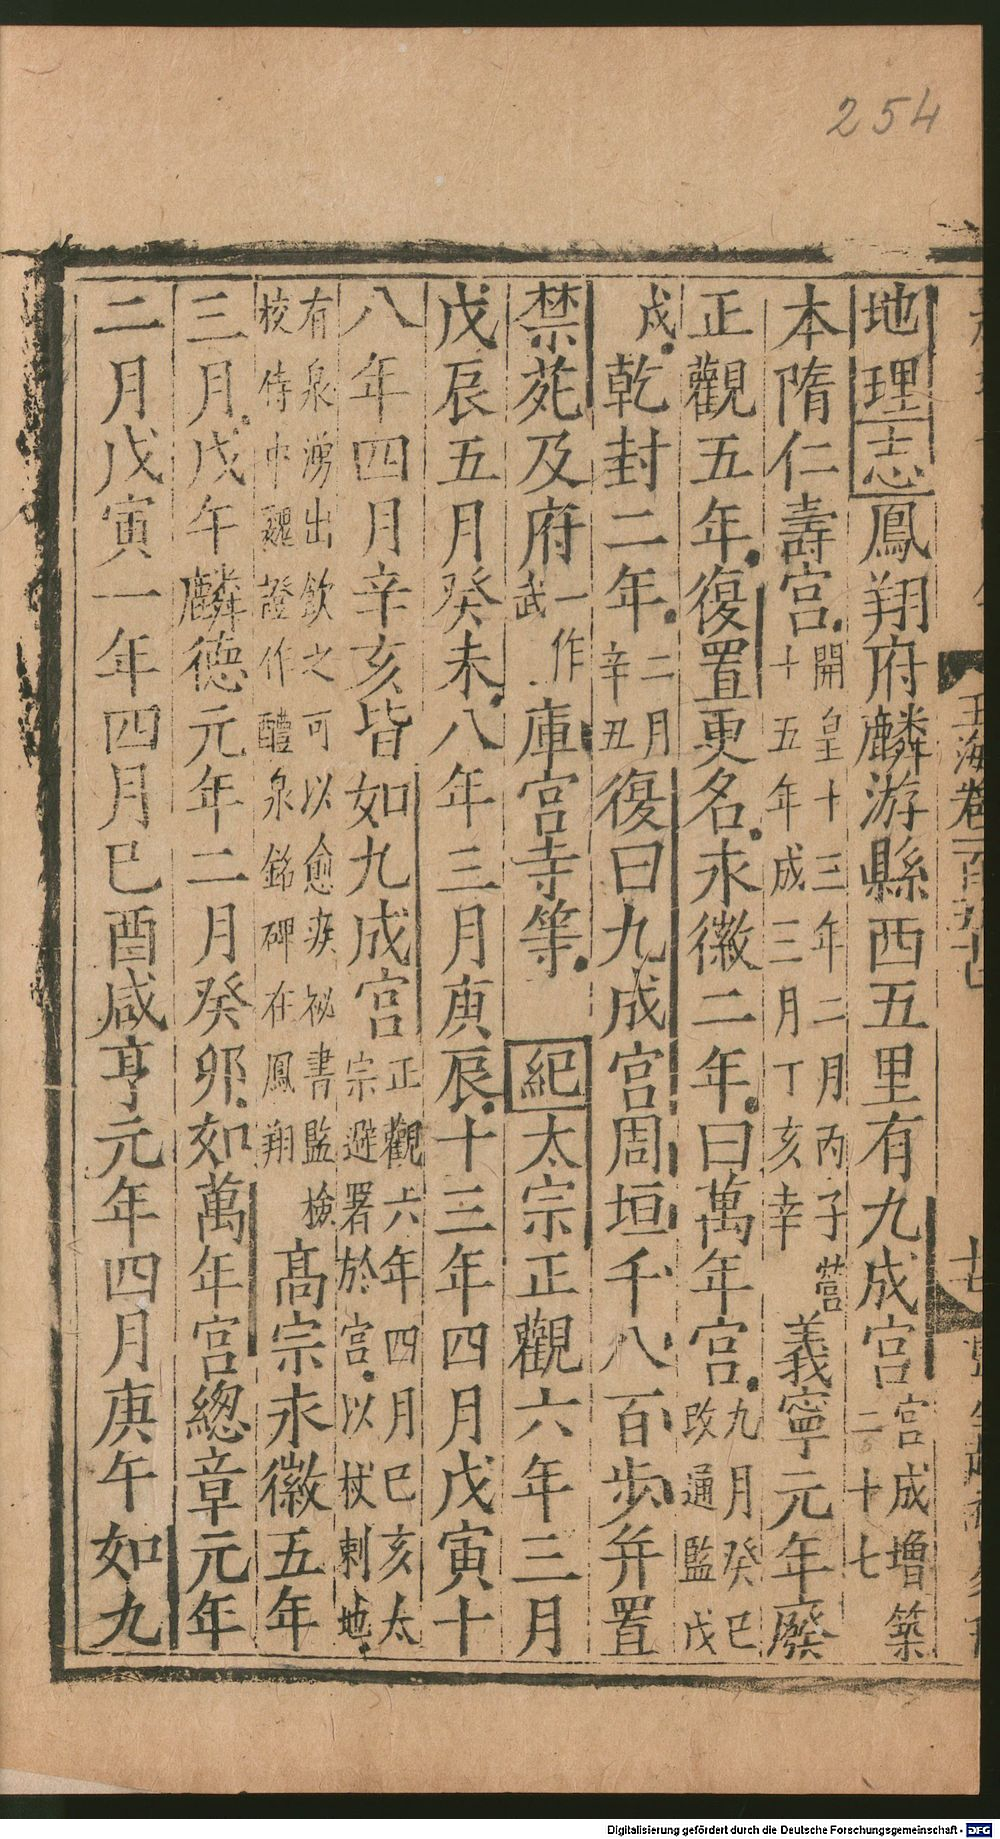 254
地理志鳳翔府麟游縣西五里有九成宮宮成增築二十七
本隋仁壽宮開皇十三年二月丙子營十五年成三月丁亥幸義寧元年廢
正觀五年復置更名永徽二年曰萬年宮九月癸巳改通監戊
戍乾封二年二月辛丑復曰九成宮周垣千八百步并置
禁苑及府一作武庫宮寺等紀太宗正觀六年三月
戊辰五月癸未八年三月庚辰十三年四月戊寅十
八年四月辛亥皆如九成宮正觀六年四月巳亥太宗避署於宮以杖刺地
有泉湧出飲之可以愈疾祕書監檢校侍中魏證作醴泉銘碑在鳳翔高宗永徽五年
三月戊午麟德元年二月癸卯如萬年宮緫章元年
二月戊寅一年四月巳酉咸亨元年四月庚午如九
玉海卷一百五
Digitalisierung gefördert durch die Deutsche Forschungsgemeinschaft - DFG